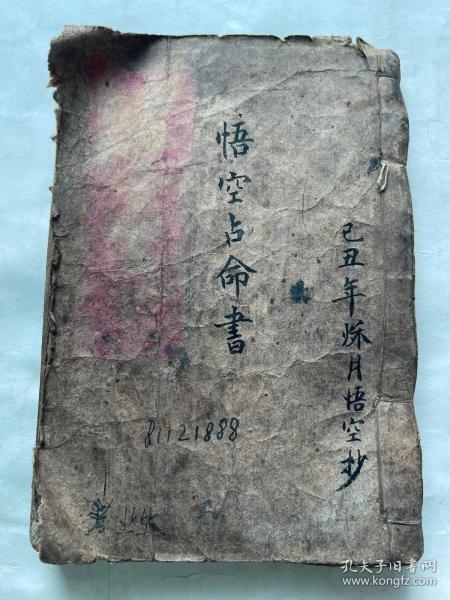 己丑年秌月悟空抄
悟空占命書
81121888
孔夫子旧书网
www.kongfz.com